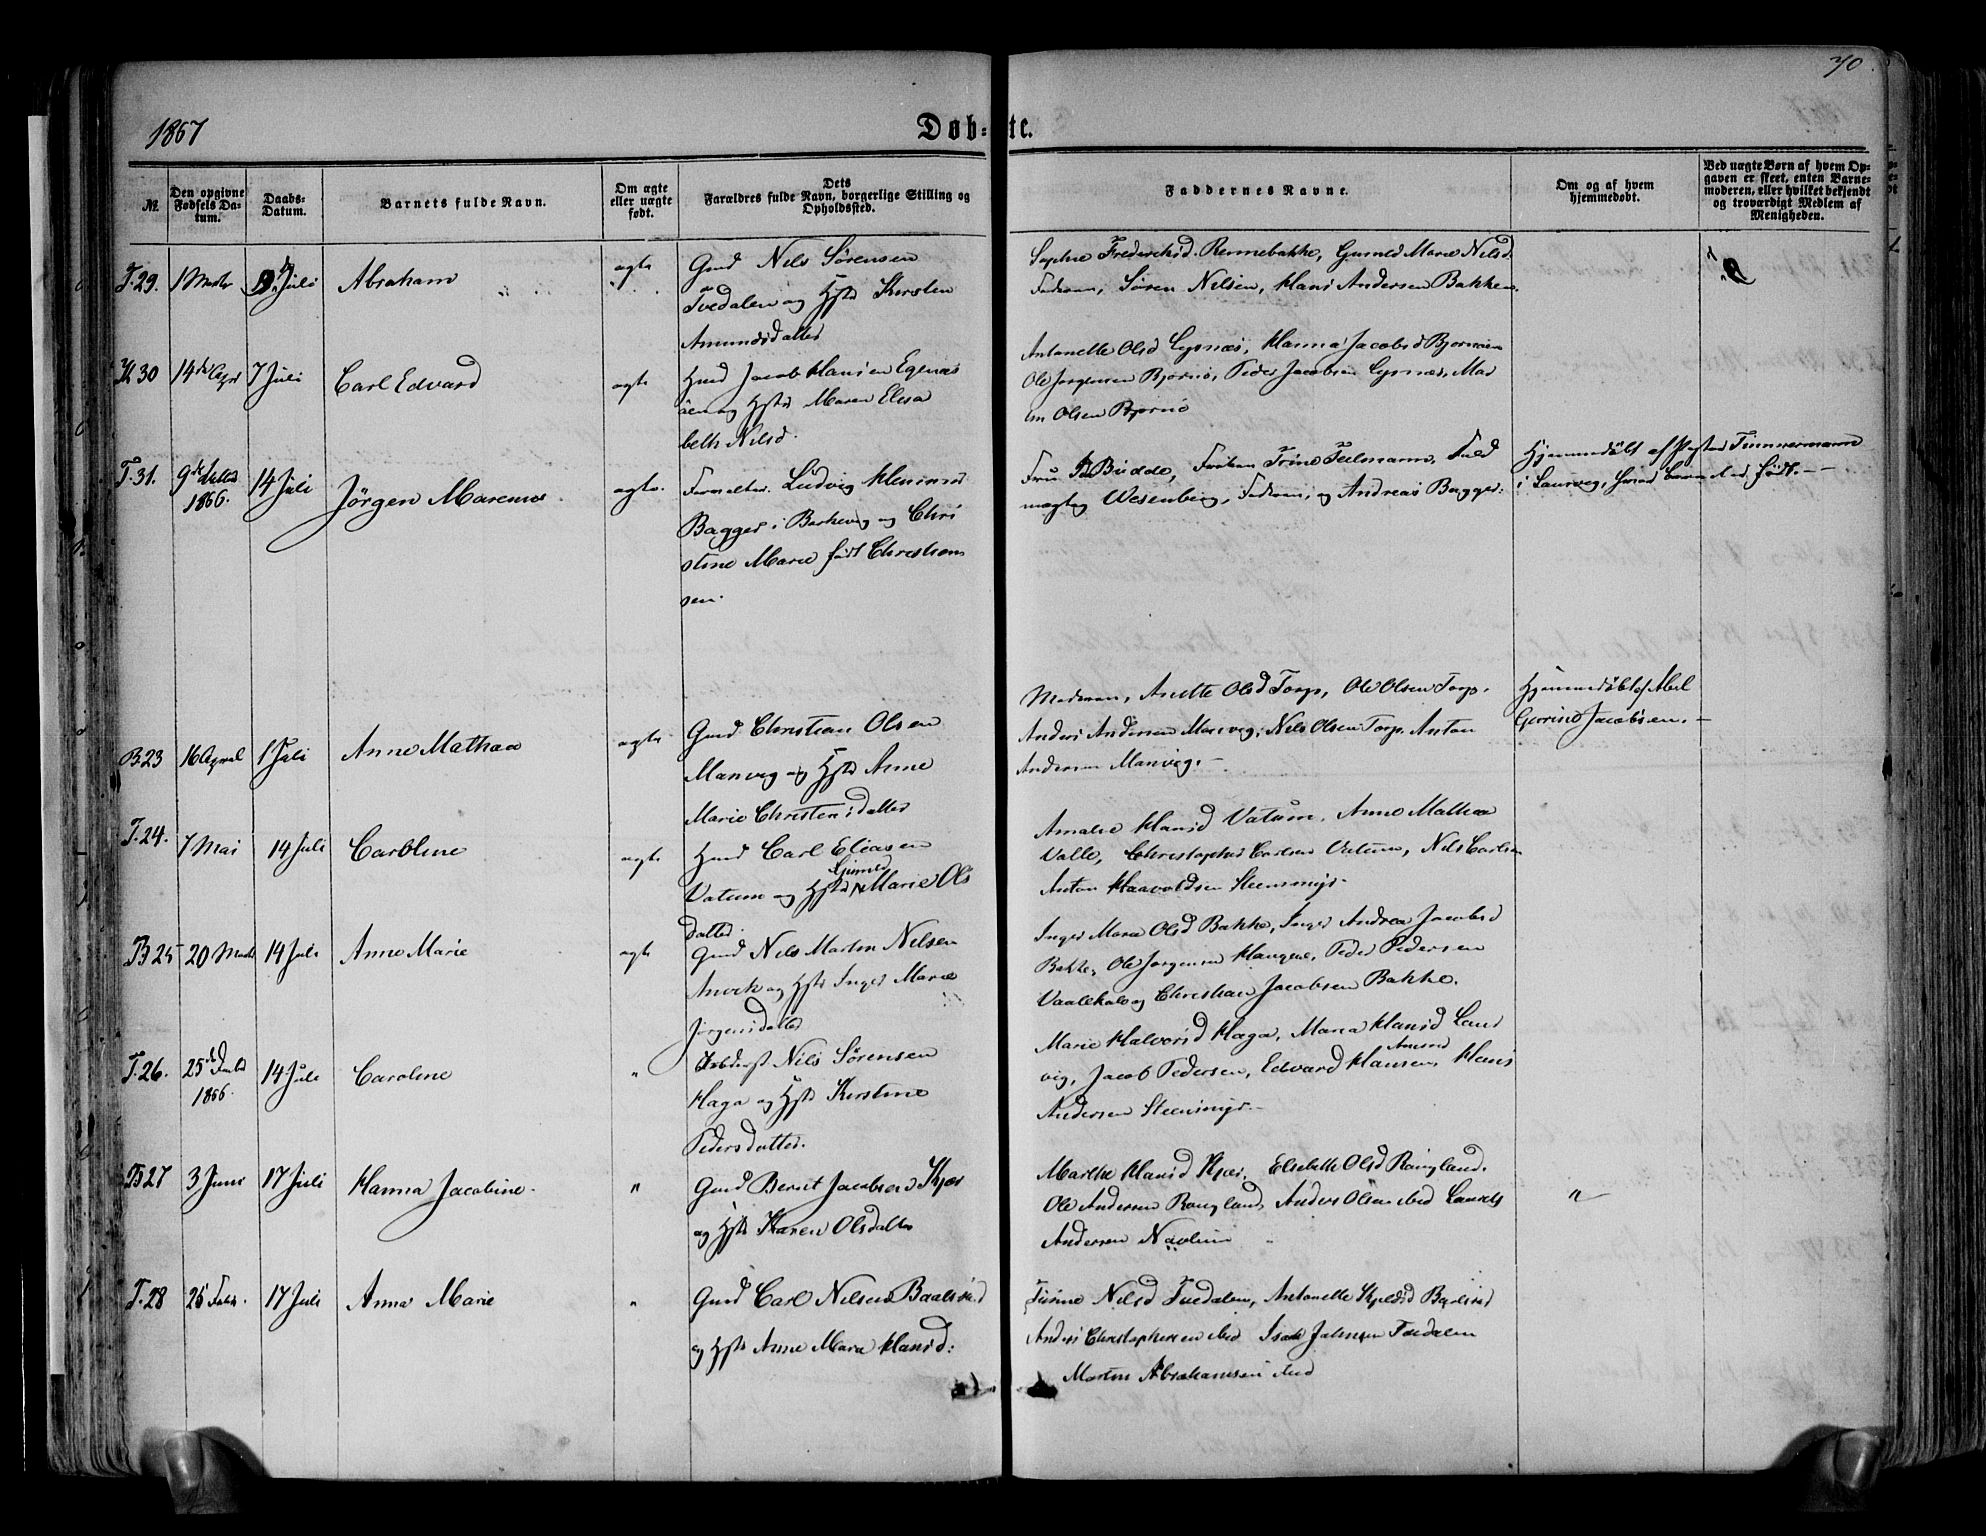 70
1867
Døb=te.
№
Den opgivne Fødsels Datum.
Daabs-Datum.
Barnets fulde Navn.
Om ægte eller uægte født.
Dets Forældres fulde Navn, borgerlige Stilling og Opholdssted.
Faddernes Navne.
Om og af hvem hjemmedøbt.
Ved uægte Børn af hvem Opgaven er skeet, enten Barnemoderen, eller hvilket bekjendt og troværdigt Medlem af Menigheden.
T. 29. 1 Marts Juli Abraham ægte
Gmd Nils Sørensen
Tvedalen og Hstr Kirsten
Amundsdatter
Sophie Fredriksd. Rennebakke, Gunild Marie Nilsd.
Faderen, Søren Nilsen, Hans Andersen Bakken.
30 14de April 7 Juli Carl Edvard ægte
Hmd Jacob Hansen
og Hstr Maren Elisa
beth Nilsd.
Antonette Olsd Hanna Jacobsd Bjørnøen
Ole Jørgensen Bjørnø, Peder Jacobsen
Olsen Bjørnø
T. 31. 9de 1866. 14 Juli Jørgen Marenus ægte.
Forvalter Ludvig
Bagger i Barkevig og Chri
stine Marie født Christian
sen.
Fru Budde, Frøken Trine Teilmann, Fuld
mægtig Wesenberg, Faderen, og Andreas Bagger.
Hjemmedøbt af Timmermann
i Laurvig, hvor Barnet født. —
B. 23 16 April 1 Juli Anne Mathea ægte
Gmd Christian Olsen
Manvig og Hstr Anne
Marie Christensdatter
Moderen, Anette Olsd Torp, Ole Olsen Torp.
Anders Andersen Manvig, Nils Olsen Torp, Anton
Andersen Manvig. —
Hjemmedøbt af Abel
Jacobsen. —
T. 24. 7 Mai 14 Juli Caroline ægte
Hmd Carl Eliasen
Vatum og Hstr Gunild Marie Ols
datter.
Amalie Hansd Vatum, Anne Mathea
Valle, Christopher Carlsen Vatum, Nils Carlsen
Anton Haavoldsen Steensmyr.
B 25 20 Marts 14 Juli Anne Marie ægte
Gmd Nils Martin Nilsen
Anvik og Hstr Inger Marie
Jørgensdatter
Inger Marie Olsd Bakke, Inger Andrea Jacobsd
Bakke, Ole Jørgensen Haugene, Peder Pedersen
og Christian Jacobsen Bakke.
T. 26. 25de 1866. 14 Juli Caroline "
Nils Sørensen
Haga og Hstr Kirstine
Pedersdatter.
Marie Halvorsd Haga, Maria Hansd Laur
vig, Jacob Pedersen, Edvard Hansen, Hans
Andersen Steensmyr. —
B 27 3 Juni 17 Juli Hanna Jacobine. "
Gmd Bernt Jacobsen Kjær
og Hstr Karen Olsdatter
Marthe Hansd Kjær, Elsebette Olsd Rougland.
Ole Andersen Rougland, Anders Olsen ibid Laurits
Andersen
"
T. 28 25 Febr. 17 Juli Anna Marie "
Gmd Carl Nilsen Baalsrud
og Hstr Anne Maria Hansd:
Nilsd Tvedalen, Antonette
Anders Christophersen ibid Isak Johnsen Tvedalen
Martin Abrahamsen ibid